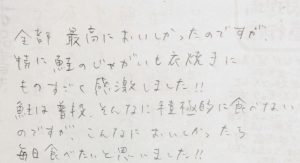 全部 最高においしかったのですが、
特に鮭のじゃがいも衣焼きに
ものすごく感激しました!!
鮭は普段、そんなに積極的に食べない
のですが、こんなにおいしかったら
毎日食べたいと思いました!!